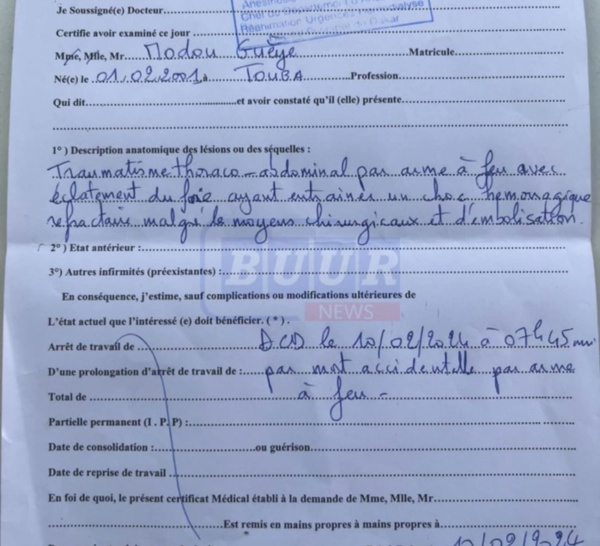 Je Soussigné(e) Docteur
Chef du Département
Réanimation Urgences
Certifie avoir examiné ce jour
Mme, Mlle, Mr Modou Guèye Matricule
Né(e) le 01.02.2001 à TOUBA Profession
Qui dit et avoir constaté qu'il (elle) présente
1°) Description anatomique des lésions ou des séquelles :
Traumatisme thoraco-abdominal par arme à feu avec
éclatement du foie ayant entrainer un choc hémorragique
refractaire malgré de moyens chirurgicaux et d'embolisation.
2°) Etat antérieur :
3°) Autres infirmités (préexistantes) :
BUUR
NEWS
En conséquence, j'estime, sauf complications ou modifications ultérieures de
L'état actuel que l'intéressé (e) doit bénéficier. (*).
Arrêt de travail de DCD le 10/02/2024 à 07h45 mn
D'une prolongation d'arrêt de travail de : par mort accidentelle par arme
Total de à feu -
Partielle permanent (I . P. P) :
Date de consolidation : ou guérison.
Date de reprise de travail
En foi de quoi, le présent certificat Médical établi à la demande de Mme, Mlle, Mr
Est remis en mains propres à mains propres à